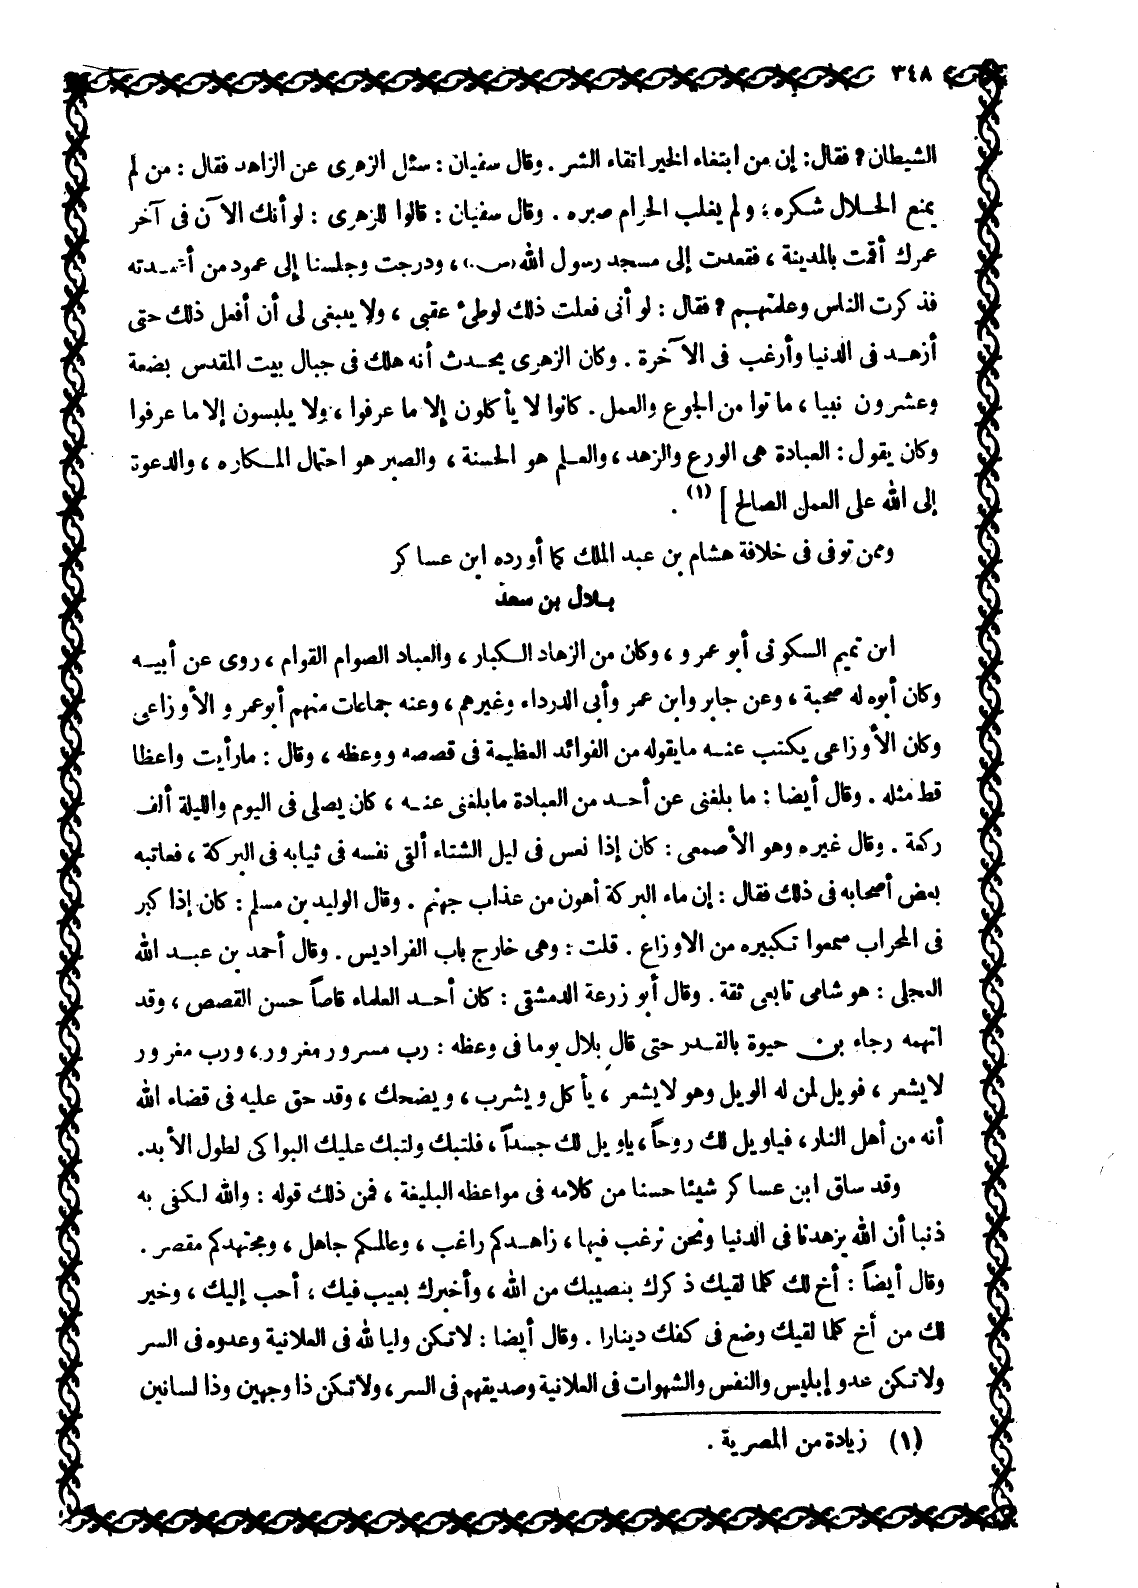 ٣٤٨
الشيطان ? فقال : إن من ابتغاء الخير اتقاء الشر . وقال سفيان : سئل الزهرى عن الزاهد فقال : من لم
يمنع الحلال شكره ، ولم يغلب الحرام صبره . وقال سفيان : قالوا للزهرى : لو أنك الآن فى آخر
عمرك أقمت بالمدينة ، فقعدت إلى مسجد رسول الله (س) ، ودرجت وجلسنا إلى عمود من أعمدته
فذكرت الناس وعلمتهم ? فقال : لو أنى فعلت ذلك لوطئ عقبى ، ولا ينبغى لى أن أفعل ذلك حتى
أزهد فى الدنيا وأرغب فى الآخرة . وكان الزهرى يحدث أنه هلك فى جبال بيت المقدس بضعة
وعشرون نبيا ، ماتوا من الجوع والعمل . كانوا لا يأكلون إلا ما عرفوا ، ولا يلبسون إلا ما عرفوا
وكان يقول : العبادة هى الورع والزهد ، والعلم هو الحسنة ، والصبر هو احتمال المكاره ، والدعوة
إلى الله على العمل الصالح ] (١) .
وممن توفى فى خلافة هشام بن عبد الملك كما أورده ابن عساكر
بلال بن سعد
ابن تميم السكونى أبو عمرو ، وكان من الزهاد الكبار ، والعباد الصوام القوام ، روى عن أبيه
وكان أبوه له صحبة ، وعن جابر وابن عمر وأبى الدرداء وغيرهم ، وعنه جماعات منهم أبو عمرو الأوزاعى
وكان الأوزاعى يكتب عنه ما يقوله من الفوائد العظيمة فى قصصه ووعظه ، وقال : ما رأيت واعظا
قط مثله . وقال أيضا : ما بلغنى عن أحد من العبادة ما بلغنى عنه ، كان يصلى فى اليوم والليلة ألف
ركعة . وقال غيره وهو الأصمعى : كان إذا نعس فى ليل الشتاء ألقى نفسه فى ثيابه فى البركة ، فعاتبه
بعض أصحابه فى ذلك فقال : إن ماء البركة أهون من عذاب جهنم . وقال الوليد بن مسلم : كان إذا كبر
فى المحراب سمعوا تكبيره من الاوزاع . قلت : وهى خارج باب الفراديس . وقال أحمد بن عبد الله
العجلى : هو شامى تابعى ثقة . وقال أبو زرعة الدمشقى : كان أحد العلماء قاصاً حسن القصص ، وقد
اتهمه رجاء بن حيوة بالقدر حتى قال بلال يوما فى وعظه : رب مسرور مغرور ، ورب مغرور
لا يشعر ، فويل لمن له الويل وهو لا يشعر ، يأكل ويشرب ، ويضحك ، وقد حق عليه فى قضاء الله
أنه من أهل النار ، فياويل لك روحاً ، ياويل لك جسداً ، فلتبك ولتبك عليك البواكى لطول الأبد .
وقد ساق ابن عساكر شيئا حسنا من كلامه فى مواعظه البليغة ، فمن ذلك قوله : والله لكفى به
ذنبا أن الله يزهدنا فى الدنيا ونحن نرغب فيها ، زاهدكم راغب ، وعالمكم جاهل ، ومجتهدكم مقصر .
وقال أيضاً : أخ لك كلما لقيك ذكرك بنصيبك من الله ، وأخبرك بعيب فيك ، أحب إليك ، وخير
لك من أخ كلما لقيك وضع فى كفك دينارا . وقال أيضا : لا تكن وليا لله فى العلانية وعدوه فى السر
ولا تكن عدو إبليس والنفس والشهوات فى العلانية وصديقهم فى السر ، ولا تكن ذا وجهين وذا لسانين
(١) زيادة من المصرية .